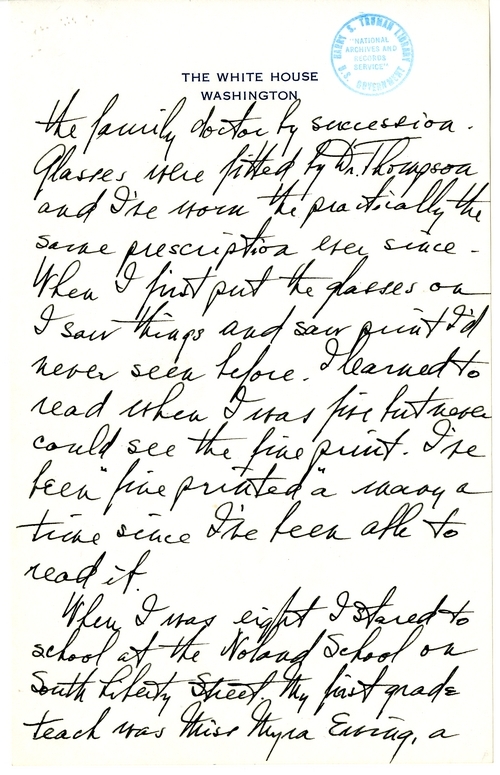 HARRY S. TRUMAN LIBRARY
"NATIONAL
ARCHIVES AND
RECORDS
SERVICE"
U.S. GOVERNMENT
THE WHITE HOUSE
WASHINGTON
the family doctor by succession.
Glasses were fitted by Dr. Thompson
and I've worn the practically the
same prescription ever since.
When I first put the glasses on
I saw things and saw print I'd
never seen before. I learned to
read when I was five but never
could see the fine print. I've
been "fine printed" a many a
time since I've been able to
read it.
When I was eight I stared to
school at the Noland School on
South Liberty Street. My first grade
teach was Miss Myra Ewing, a